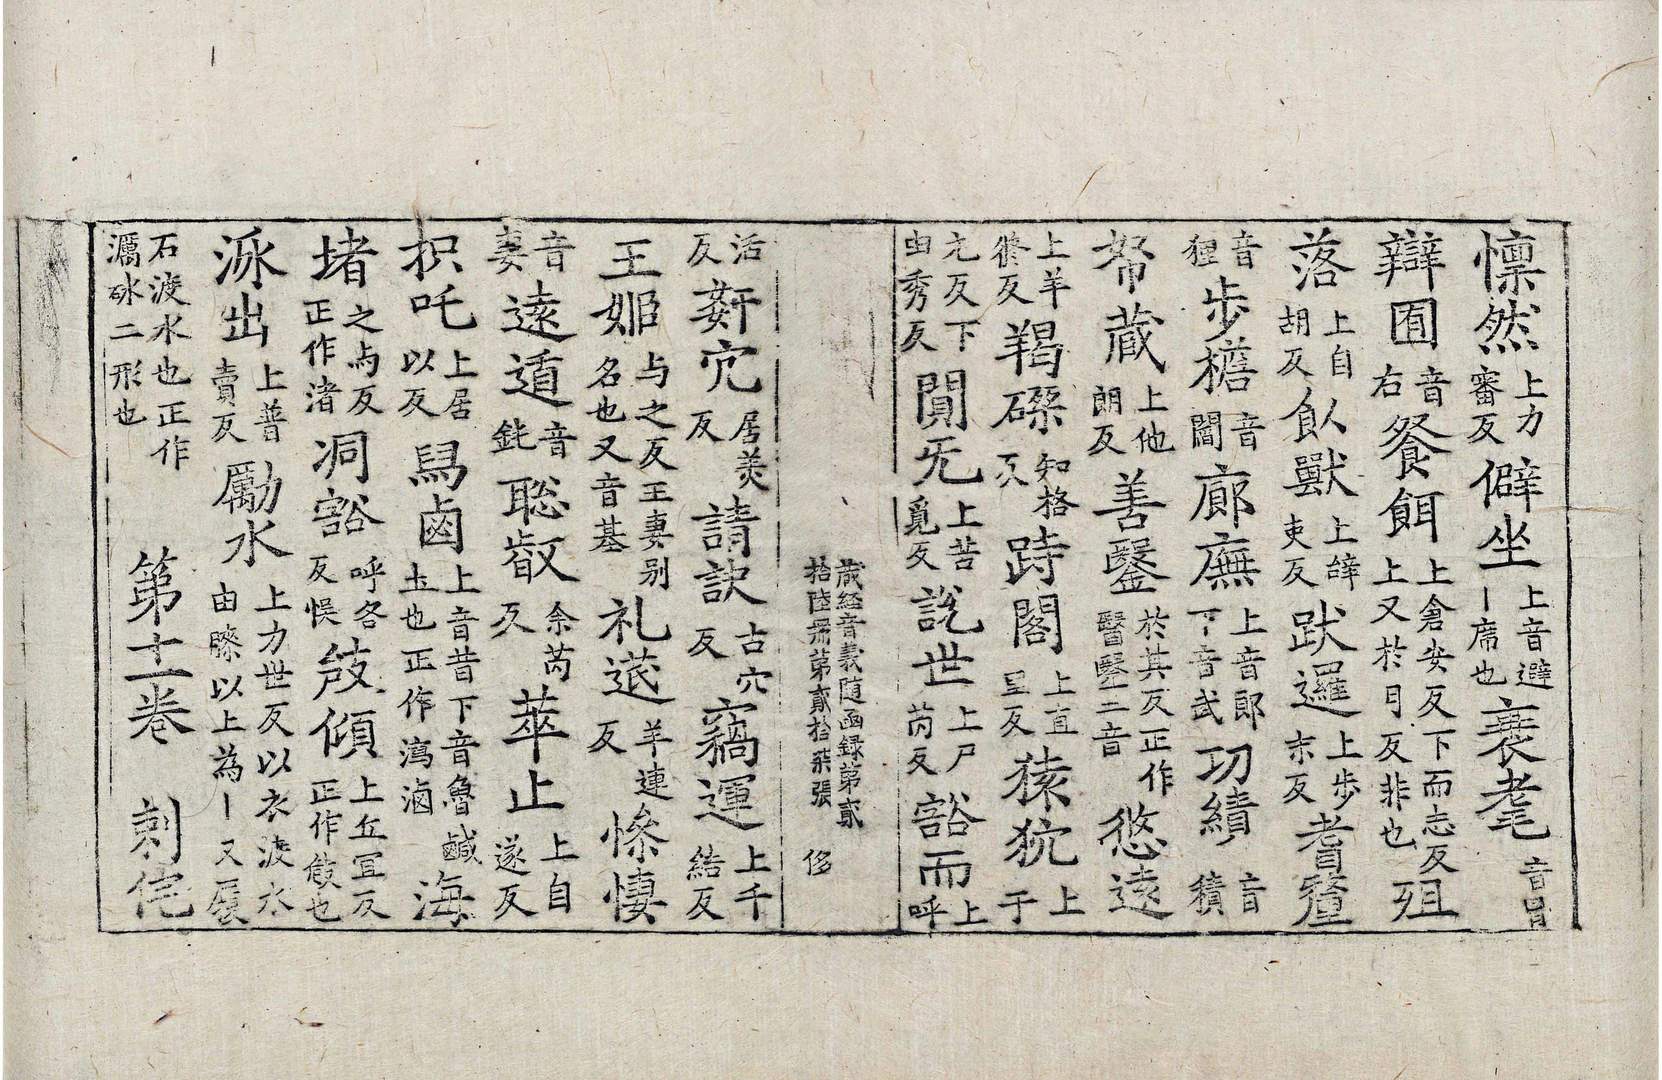 懍然上力審反僻坐上音避丨席也裹耄音冒
辯囿音右餐餌上倉安反下而志反上又於月反非也殂
落上自胡反飤獸上辝吏反跋邏上步末反耆𨤲
音狸步檐音閻廊廡上音郎下音武功績音積
帑藏上他朗反善毉於其反正作醫毉二音悠遠
上羊脩反羯磔知格反跱閣上直里反猿狖上于
元反下由秀反閴旡上苦覓反說世上尸芮反豁而上呼
藏経音義随函録第貳
拾陸册第貳拾柒張 侈
活反姧宄居美反請訣古穴反竊運上千結反
王姬与之反王妻別名也又音基礼莚羊連反慘悽
音妻遠遁音鈍聡叡余芮反萃止上自遂反
枳吒上居以反舄鹵上音昔下音魯鹹土也正作潟滷海
堵之与反正作渚洞豁呼各反悞攲傾上丘宜反正作㩻也
派出上普賣反勵水上力世反以衣渡水由膝以上為丨又履
石渡水也正作濿砅二形也
第十二卷 刺侘